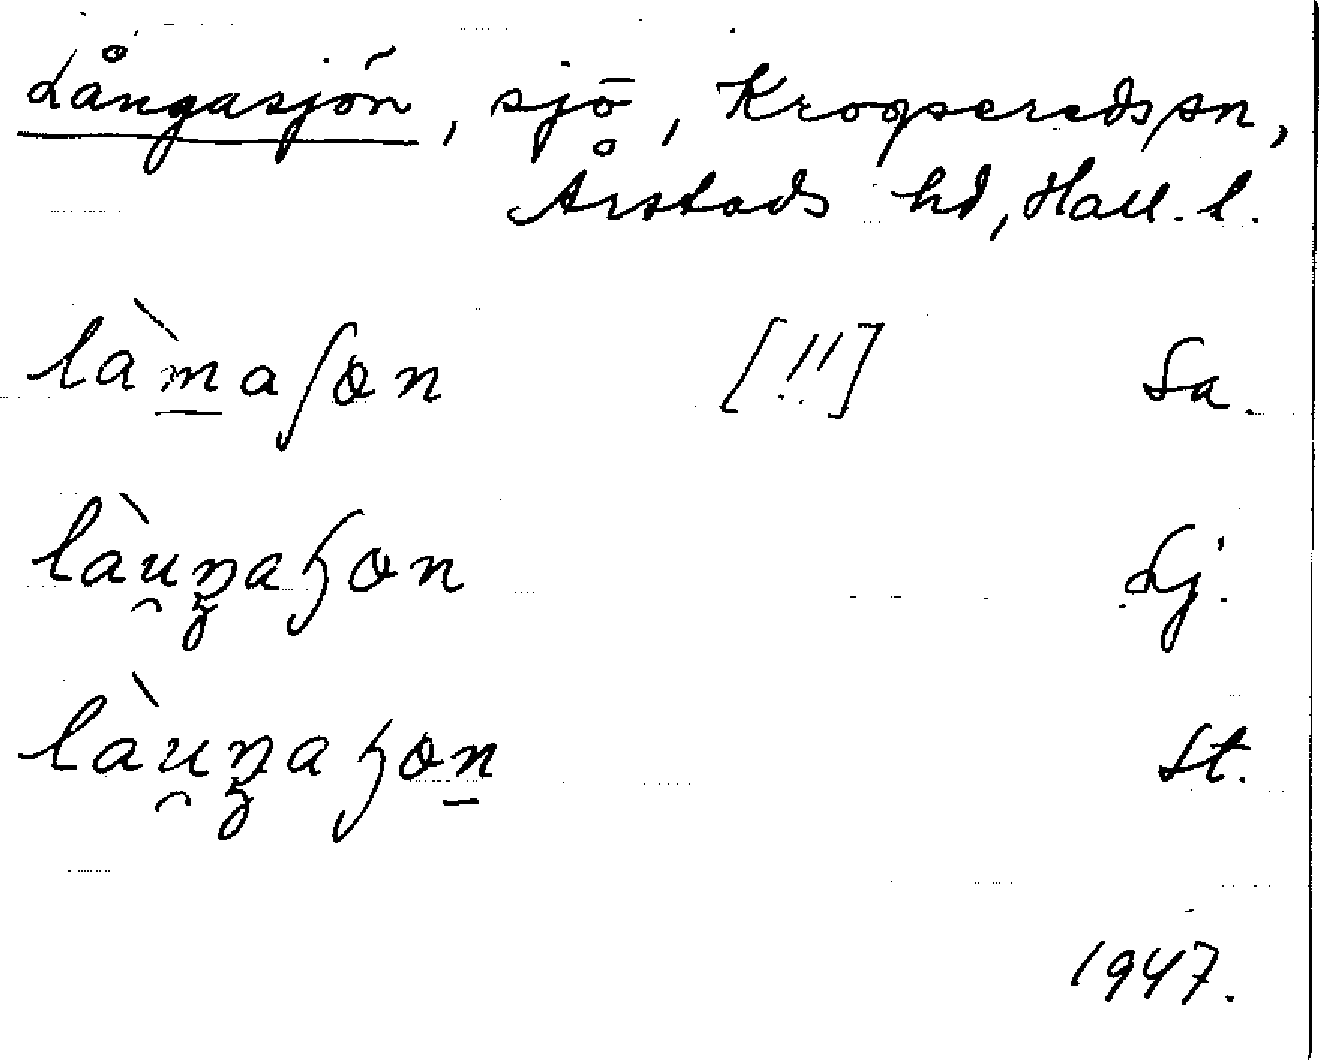 Långasjön, sjö, Krogsereds sn,
Årstads hd, Hall. l.
làmaʃɵn [!!] Sa.
làu̯ŋaɧɵn Lj.
làu̯ŋaɧɵn St.
1947.